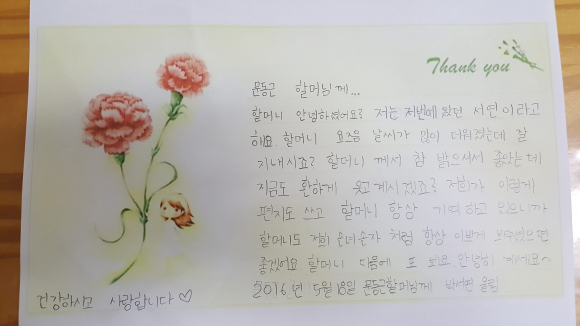 Thank you
문동근 할머님께...
할머니 안녕하셨어요? 저는 저번에 왔던 서연이라고
해요. 할머니 요즈음 날씨가 많이 더워졌는데 잘
지내시죠? 할머니 께서 참 밝으셔서 좋았는데
지금도 환하게 웃고 계시겠죠? 저희가 이렇게
편지도 쓰고 할머니 항상 기억하고 있으니까
할머니도 저희 손자 처럼 항상 이쁘게 봐주셨으면
좋겠어요 할머니 다음에 또 봬요. 안녕히 계세요~
2016년 5월 18일 문동근할머님께 박서연 올림
건강하시고 사랑합니다♡